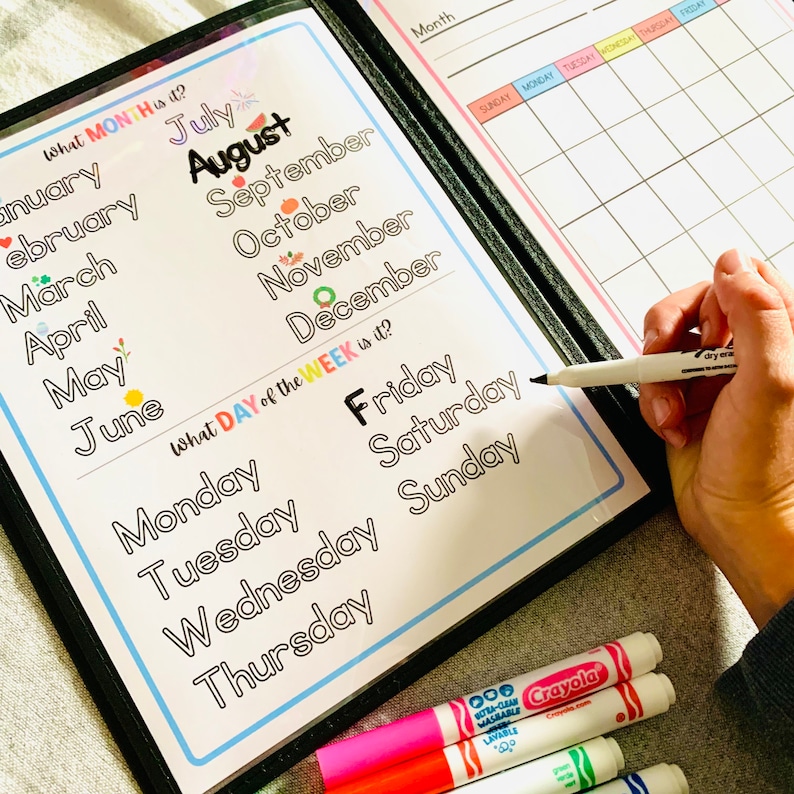 What MONTH is it?
January
February
March
April
May
June
July
August
September
October
November
December
What DAY of the WEEK is it?
Monday
Tuesday
Wednesday
Thursday
Friday
Saturday
Sunday
Month
SUNDAY MONDAY TUESDAY WEDNESDAY THURSDAY FRIDAY
dry eras
Crayola
ULTRA-CLEAN
WASHABLE
Crayola
LAVABLE
green
verde
vert